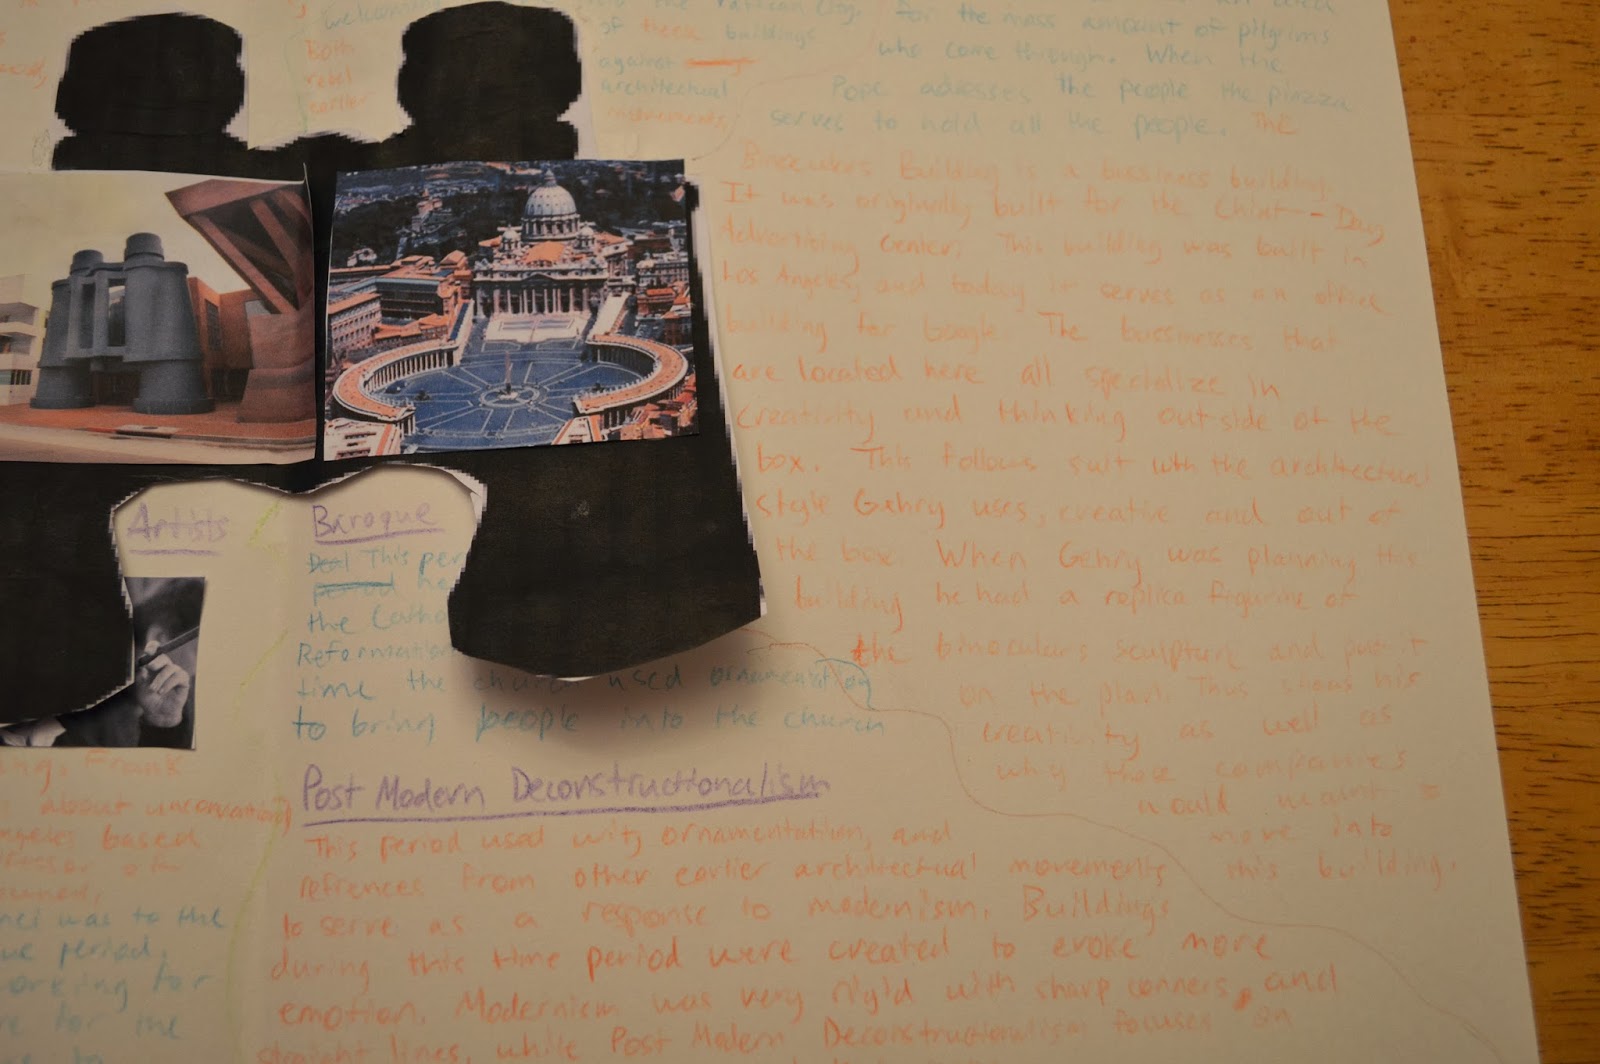 welcoming
Both
rebel
earlier
the Vatican City.
of these buildings
against
architectural
movements.
for the mass amount of pilgrims
who come through. When the
Pope adresses the people the piazza
serves to hold all the people. The
Binoculars Building is a bussiness building.
It was originally built for the Chiat-Day
Advertising Center. This building was built in
Los Angeles, and today it serves as an office
building for Google. The bussinesses that
are located here all specialize in
creativity and thinking outside of the
box. This follows suit with the architectural
style Gehry uses, creative and out of
the box. When Gehry was planning this
building he had a replica figurine of
the binoculars sculpture and put it
on the plan. Thus shows his
creativity as well as
why these companie's
would want to
move into
this building.
Artists
Baroque
This per
period
the Catho
Reformation
time the church used ornamentation
to bring people into the church
Post Modern Deconstructionalism
This period used wit, ornamentation, and
refrences from other earlier architectual movements
to serve as a response to modernism. Buildings
during this time period were created to evoke more
emotion. Modernism was very rigid with sharp corners, and
straight lines, while Post Modern Deconstructionalism focuses on
ing. Frank
about unconventional
angeles based
nei was to the
ue period.
orking for
re for the